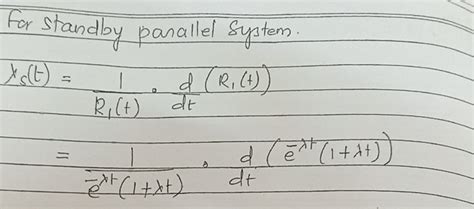 For standby parallel System.
λs(t) = 1/R₁(t) . d/dt (R₁(t))
= 1/e^-λt(1+λt) . d/dt (e^-λt(1+λt))